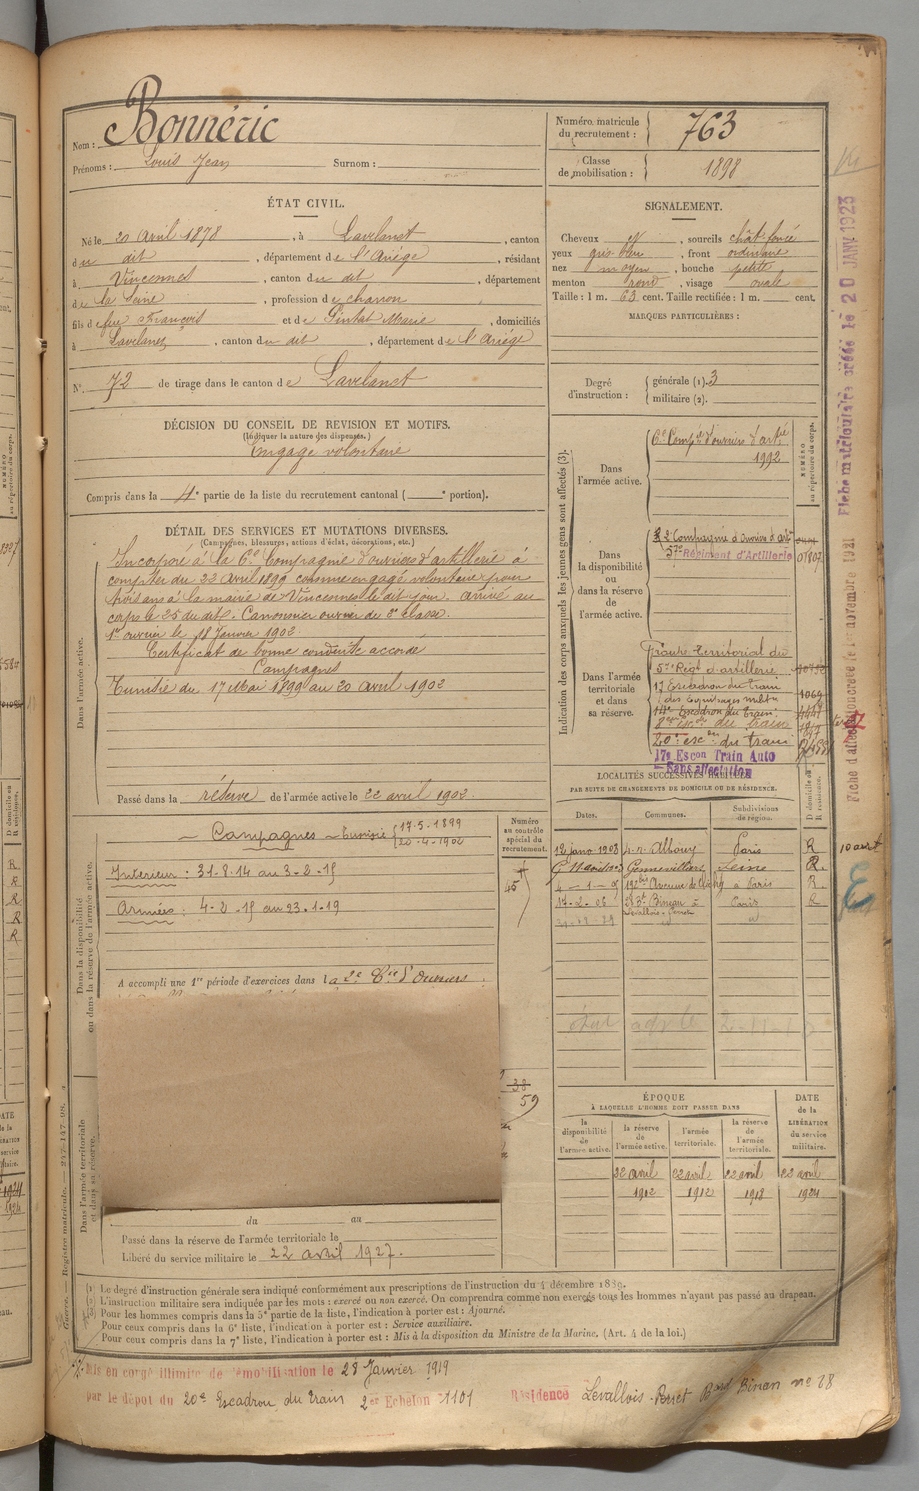 Nom : Bonnéric
Prénoms : Louis Jean Surnom :
Numéro matricule du recrutement : 763
Classe de mobilisation : 1898
ÉTAT CIVIL.
Né le 20 Avril 1878, à Lavelanet, canton
du dit, département de l'Ariège, résidant
à Vincennes, canton du dit, département
de la Seine, profession de charron
fils de feu François et de Pintat Marie, domiciliés
à Lavelanet, canton du dit, département de l'Ariège
N° 72 de tirage dans le canton de Lavelanet
SIGNALEMENT.
Cheveux, sourcils chât foncé
yeux gris bleu, front ordinaire
nez moyen, bouche petite
menton rond, visage ovale
Taille : 1 m. 63 cent. Taille rectifiée : 1 m. cent.
MARQUES PARTICULIÈRES :
Degré d'instruction : générale (1). 3
militaire (2).
DÉCISION DU CONSEIL DE REVISION ET MOTIFS.
(Indiquer la nature des dispenses.)
Engagé volontaire
Compris dans la 4e partie de la liste du recrutement cantonal ( e portion).
DÉTAIL DES SERVICES ET MUTATIONS DIVERSES.
(Campagnes, blessures, actions d'éclat, décorations, etc.)
Dans l'armée active.
Incorporé à la 6e Compagnie d'ouvriers d'artillerie à
compter du 22 Avril 1899 comme engagé volontaire pour
trois ans à la mairie de Vincennes le dit jour. Arrivé au
corps le 25 du dit. Canonnier ouvrier de 2e classe.
1er ouvrier le 18 Janvier 1902
Certificat de bonne conduite accordé
Campagnes
Tunisie du 17 Mai 1899 au 20 avril 1902
Passé dans la réserve de l'armée active le 22 avril 1902.
Indication des corps auxquels les jeunes gens sont affectés (3).
NUMÉRO au répertoire du corps.
Dans l'armée active.
6e Compie d'ouvriers d'artie
1992
Dans la disponibilité ou dans la réserve de l'armée active.
2 Compagnie d'Ouvriers d'artie
Régiment d'Artillerie
Dans l'armée territoriale et dans sa réserve.
Groupe Territorial du
Régt d'artillerie
17 Escadron du train
des Equipages milit
14e Escadron du Train
du train
20e escon du train
17e Escon Train Auto
Sans affectation
Dans la disponibilité ou dans la réserve de l'armée active.
Campagnes - Tunisie 17-5-1899
20-4-1902
Intérieur : 3-8-14 au 3-2-15
Armées : 4-2-15 au 23-1-19
A accompli une 1re période d'exercices dans la 2e Cie d'Ouvriers
Numéro au contrôle spécial du recrutement.
45
38
59
LOCALITÉS SUCCESSIVES HABITÉES
PAR SUITE DE CHANGEMENTS DE DOMICILE OU DE RÉSIDENCE.
Dates. Communes. Subdivisions de région. D domicile ou R résidence.
12 janv 1903 4. r. Albouy Paris R
Gennevilliers Seine R.
4-1-05 Avenue de Clichy à Paris R.
17-2-06 28 Bd Bineau à Levallois-Perret Paris R
ÉPOQUE
À LAQUELLE L'HOMME DOIT PASSER DANS
la disponibilité de l'armée active.
la réserve de l'armée active.
l'armée territoriale.
la réserve de l'armée territoriale.
DATE de la LIBÉRATION du service militaire.
22 avril 22 avril 22 avril 22 avril
1902 1912 1918 1924
Dans l'armée territoriale et dans sa réserve.
du au
Passé dans la réserve de l'armée territoriale le
Libéré du service militaire le 22 avril 1927.
(1) Le degré d'instruction générale sera indiqué conformément aux prescriptions de l'instruction du 4 décembre 1889.
(2) L'instruction militaire sera indiquée par les mots : exercé ou non exercé. On comprendra comme non exercés tous les hommes n'ayant pas passé au drapeau.
(3) Pour les hommes compris dans la 5e partie de la liste, l'indication à porter est : Ajourné.
Pour ceux compris dans la 6e liste, l'indication à porter est : Service auxiliaire.
Pour ceux compris dans la 7e liste, l'indication à porter est : Mis à la disposition du Ministre de la Marine. (Art. 4 de la loi.)
Mis en congé illimité de démobilisation le 23 Janvier 1919
par le dépôt du 20e Escadron du Train 2er Echelon 1101 Résidence Levallois-Perret Bard Bineau no 28
Fiche matriculaire créée le 20 JANV 1923